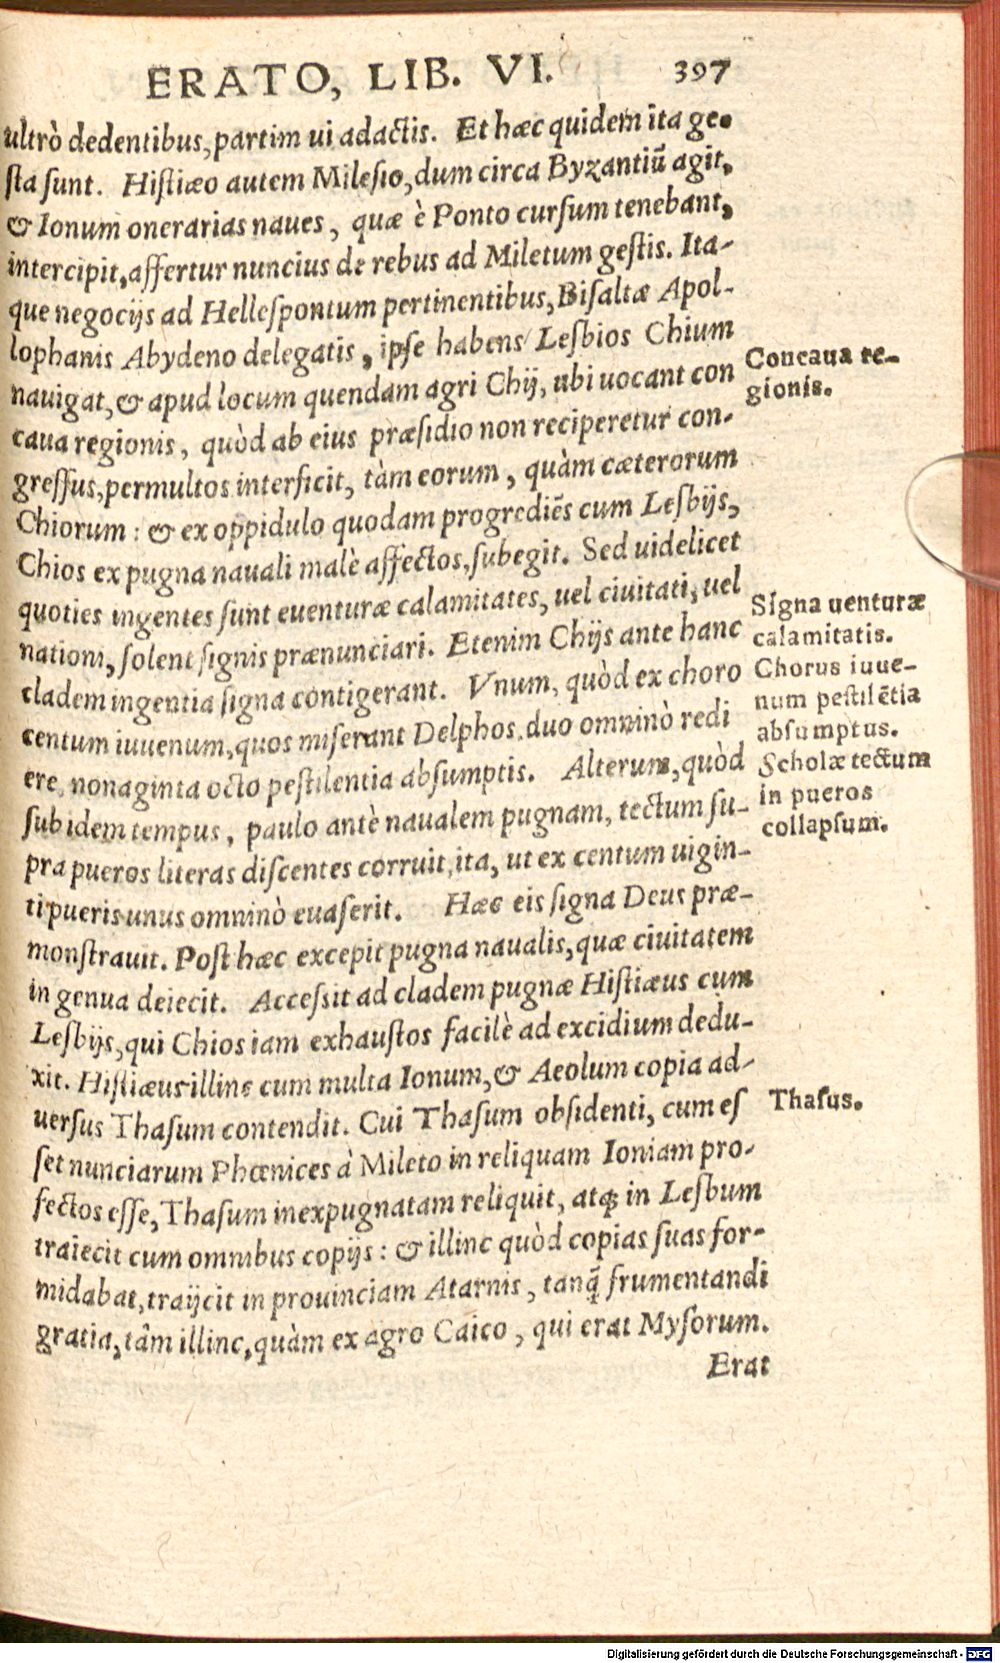 ERATO, LIB. VI. 397
ultrò dedentibus, partim ui adactis. Et hæc quidem ita ge-
sta sunt. Histiæo autem Milesio, dum circa Byzantiū agit,
& Ionum onerarias naues, quæ è Ponto cursum tenebant,
intercipit, affertur nuncius de rebus ad Miletum gestis. Ita-
que negocijs ad Hellespontum pertinentibus, Bisaltæ Apol-
lophanis Abydeno delegatis, ipse habens Lesbios Chium
nauigat, & apud locum quendam agri Chij, ubi uocant con
caua regionis, quòd ab eius præsidio non reciperetur con-
gressus, permultos interficit, tàm eorum, quàm cæterorum
Chiorum: & ex oppidulo quodam progrediēs cum Lesbijs,
Chios ex pugna nauali malè affectos, subegit. Sed uidelicet
quoties ingentes sunt euenturæ calamitates, uel ciuitati, uel
nationi, solent signis prænunciari. Etenim Chijs ante hanc
cladem ingentia signa contigerant. Vnum, quòd ex choro
centum iuuenum, quos miserunt Delphos, duo omninò redi
ere, nonaginta octo pestilentia absumptis. Alterum, quòd
sub idem tempus, paulo antè naualem pugnam, tectum su-
pra pueros literas discentes corruit, ita, ut ex centum uigin-
ti pueris unus omninò euaserit. Hæc eis signa Deus præ-
monstrauit. Post hæc excepit pugna naualis, quæ ciuitatem
in genua deiecit. Accessit ad cladem pugnæ Histiæus cum
Lesbijs, qui Chios iam exhaustos facilè ad excidium dedu-
xit. Histiæus illinc cum multa Ionum, & Aeolum copia ad-
uersus Thasum contendit. Cui Thasum obsidenti, cum es
set nunciarum Phœnices à Mileto in reliquam Ioniam pro-
fectos esse, Thasum inexpugnatam reliquit, atq; in Lesbum
traiecit cum omnibus copijs: & illinc quòd copias suas for-
midabat, traijcit in prouinciam Atarnis, tanq̃ frumentandi
gratia, tâm illinc, quàm ex agro Caico, qui erat Mysorum.
Erat
Concaua re-
gionis.
Signa uenturæ
calamitatis.
Chorus iuue-
num pestilētia
absumptus.
Scholæ tectum
in pueros
collapsum.
Thasus.
Digitalisierung gefördert durch die Deutsche Forschungsgemeinschaft - DFG